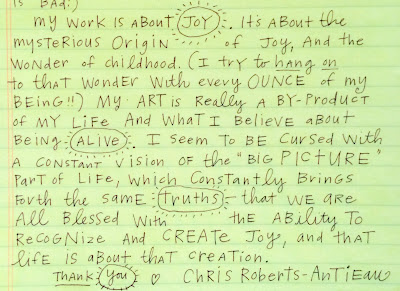 is BAD:)
my WORK is ABOUT JOY. It's ABOUT the
mysterious Origin of Joy, And the
Wonder of childhood. (I try to hang on
to that wonder with every OUNCE of my
BEing!!) My ART is Really A BY-PRoduct
of my Life And what I Believe aBout
Being ALIVE. I seem to BE Cursed With
A Constant Vision of the "BIG PICTURE"
Part of Life, which Constantly Brings
forth the same truths - that WE ARE
All Blessed With the Ability To
Recognize And CREATE Joy, and that
life is aBout that creation.
Thank You ♡ Chris Roberts-Antieau